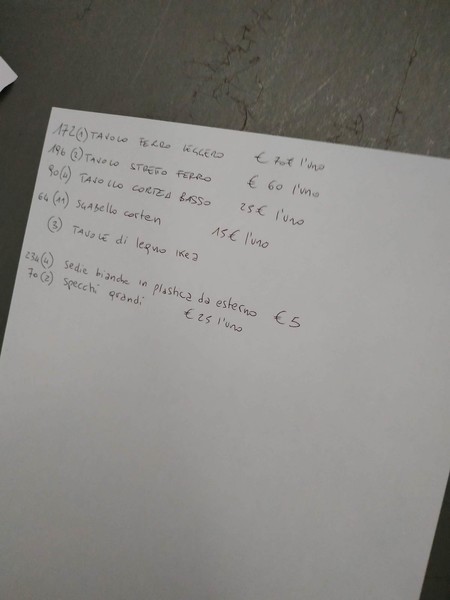 172 (1) TAVOLO FERRO LEGGERO € 70€ l'uno
196 (2) TAVOLO STRETO FERRO € 60 l'uno
90 (4) TAVOLLO CORTEN BASSO 25€ l'uno
64 (11) SGABELLO corten 15€ l'uno
(3) TAVOLE di legno IKEA
234 (4) sedie bianche in plastica da esterno €5
70 (2) specchi grandi € 25 l'uno